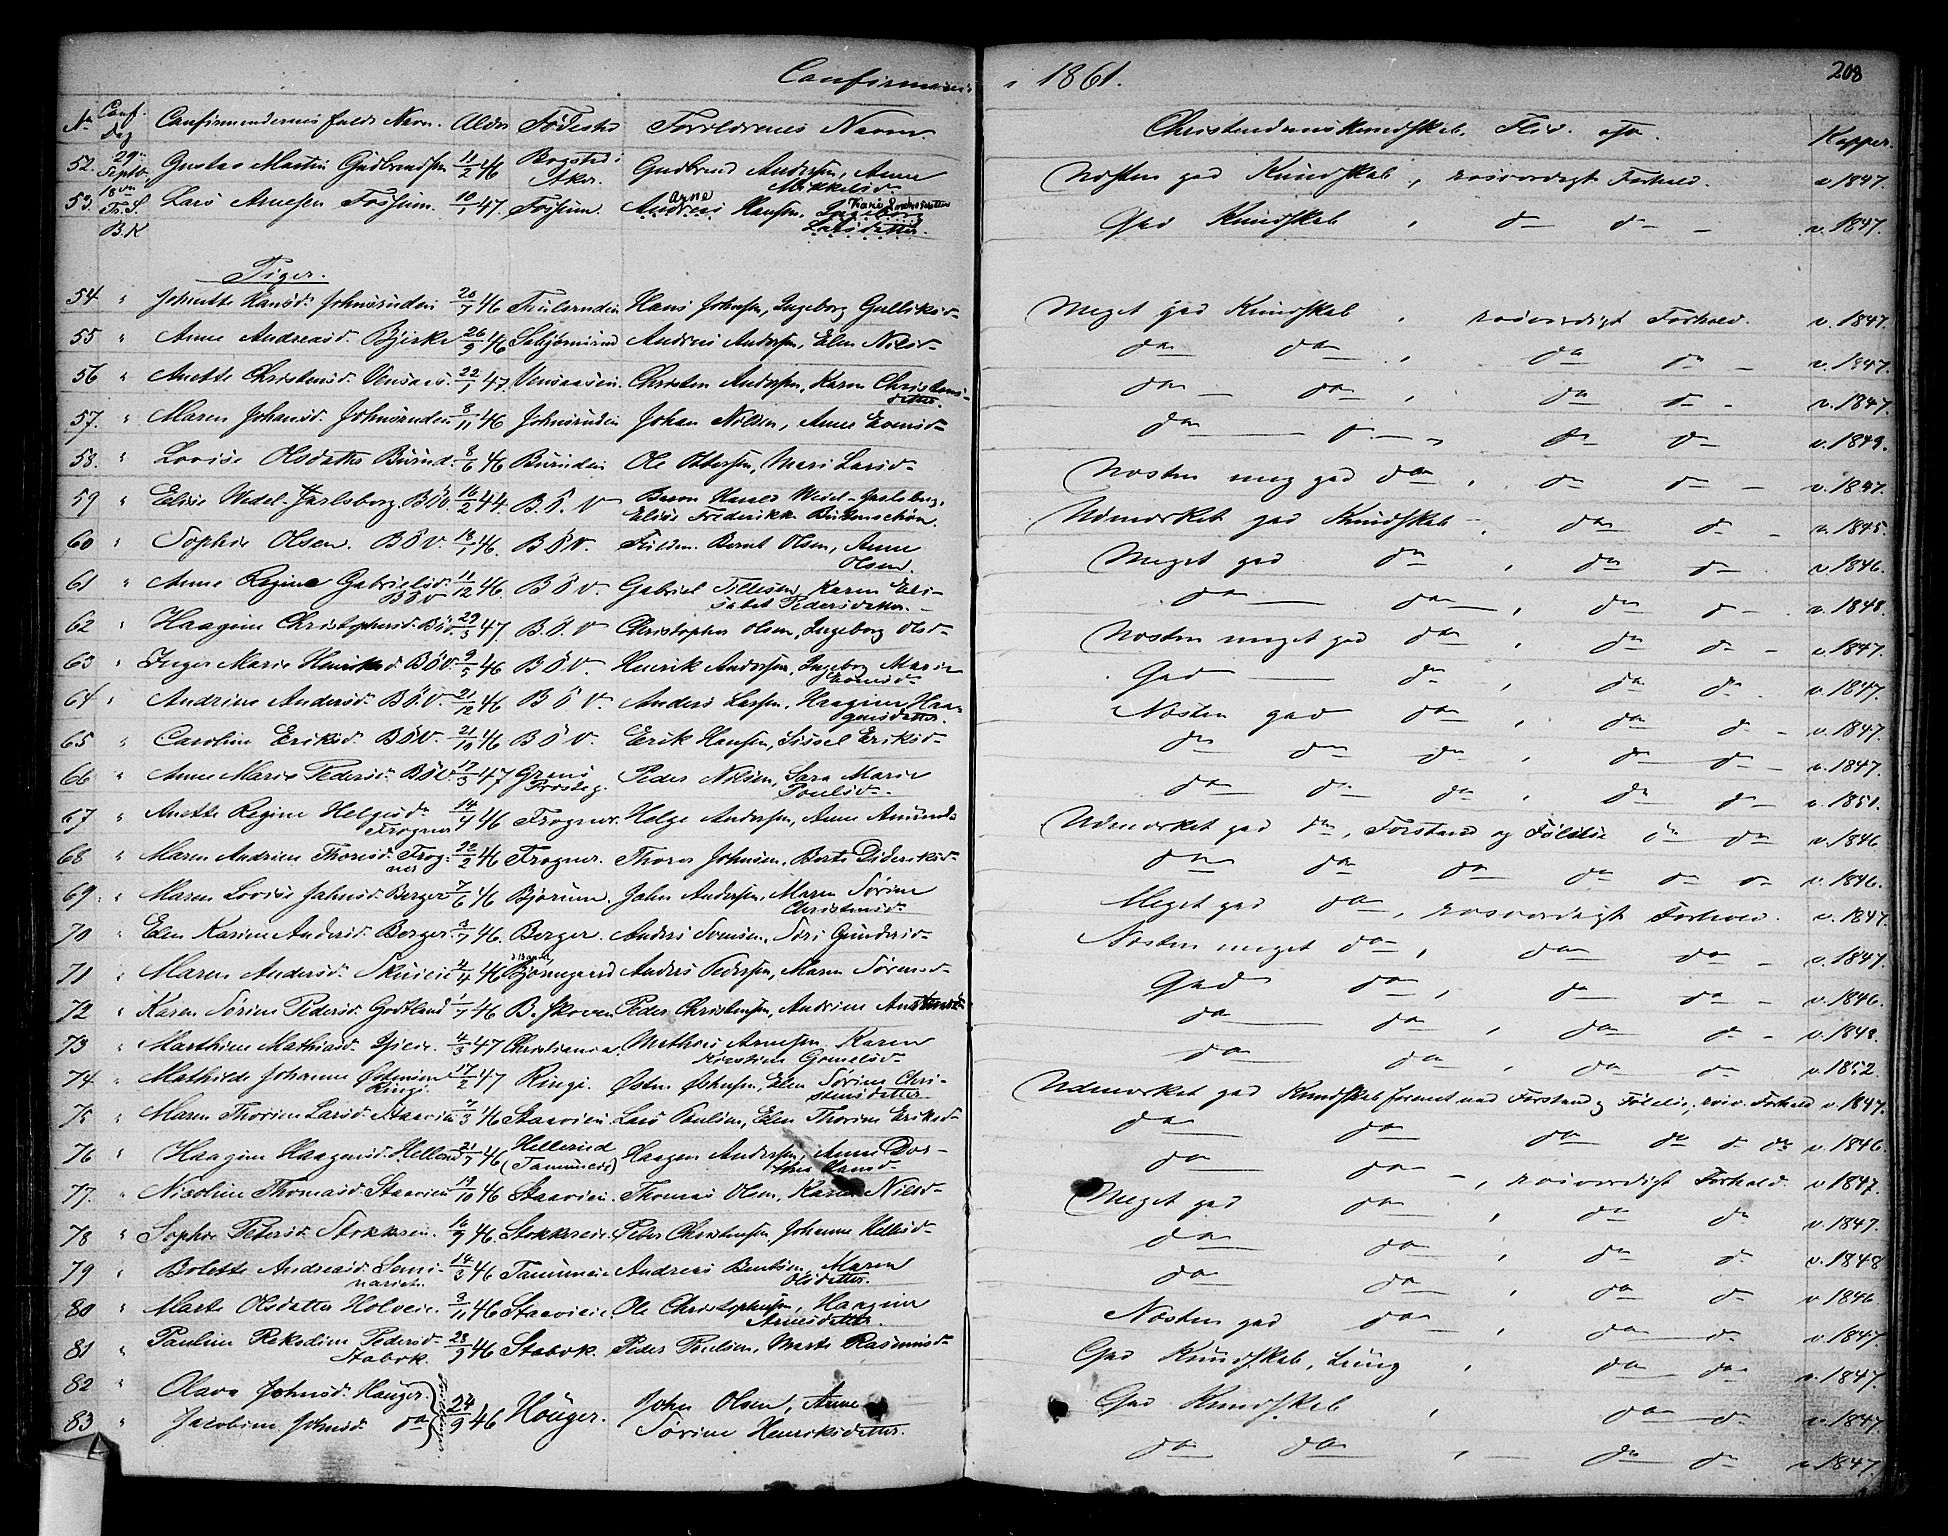 Confirmerede i 1861. 208
No Conf. Dag Confirmandernes fulde Navn. Alder Födested Forældrenes Navne Christendomskundskab, Flid. osv. Kopper.
52. 29de Septbr. Gustav Martin Gudbrandsen 11/2 46 Bogstad i Aker. Gudbrand Andersen, Anne Mikkelsd. Næsten god Kundskab, rosværdigt Forhold. v. 1847.
53. Lars Arnesen Fossum. 10/1 47. Fossum. Andreas Hansen, Ingeborg Larsdatter. God Kundskab, do do v. 1847.
B.K
Piger.
54 " Johnette Hansd. Johnsruden 20/7 46 Hans Johnsen, Ingeborg Gulliksd. Meget god Kundskab, rosværdigt Forhold. v. 1847.
55 " Anne Andreasd. Bjerke 26/9 46 Andreas Andersen, Elen Nilsd. do do, do do v. 1847.
56 " Anette Christensd. Vensaas. 22/1 47. Vensaasen. Christen Andersen, Karen Christensdatter. do do, do do v. 1847.
57. " Maren Johansd. Johnsruden 8/11 46 Johnsruden Johan Nilsen, Anne Evensd. do do, do do v. 1849.
58. " Lovise Olsdatter Burud. 8/6 46 Buruden Ole Ottersen, Mari Larsd. Næsten meg. god do, do do v. 1847.
59 " Elise Wedel-Jarlsberg. BÖV. 16/2 44. B.Ö.V Baron Harald Wedel-Jarlsberg, Elise Frederikke Butenschøn. Udmærket god Kundskab, do do v. 1845.
60 " Sophie Olsen. BÖV. 18/1 46. BÖV. Fuldm. Bernt Olsen, Anne Olsen. Meget god do, do do v. 1846.
61 " Anne Regine Gabrielsd. BÖV 11/12 46. BÖV. Gabriel Tellefsen, Karen Elisabet Pedersdatter. do do, do do v. 1848.
62 " Haagine Christophersd. BÖV. 29/3 47. B.Ö.V Christopher Olsen, Ingeborg Olsd. Næsten meget god do, do do v. 1847.
63 " Inger Marie Henriksd. BÖV. 9/5 46 BÖV. Henrik Andersen, Ingeborg Marie Evensd. God do, do do v. 1847.
64 " Andrine Andersd. BÖV. 21/12 46 BÖV. Anders Larsen, Haagine Haagensdatter. Næsten god do, do do v. 1847.
65 " Caroline Eriksd. BÖV. 21/10 46 BÖV. Erik Hansen, Sissel Eriksd. do do do, do do v. 1847.
66 " Anne Marie Pedersd. BÖV. 17/3 47 Grans Præsteg. Peder Nilsen, Sara Marie Poulsd. do do do, do do v. 1851.
67 " Anette Regine Helgesd. Frogner 14/4 46 Frogner. Helge Andersen, Anne Amundsd. Udmærket god do, Forstand og Følelse do do v. 1846
68 " Maren Andrine Thoresd. Frogner 22/2 46 Frogner. Thorer Johnsen, Berte Dideriksd. do do do do do do v. 1846.
69 " Maren Lovise Johnsd. Berger 7/6 46 Bjørum. John Andersen, Maren Sørine Christensd. Meget god do, rosværdigt Forhold. v. 1847.
70 " Elen Karine Andersd. Berger 3/7 46. Berger. Anders Svensen, Siri Gundersd. Næsten meget do, do do v. 1847.
71 " Maren Andersd. Skuieie 4/4 46 Bjørnegaard Anders Pedersen, Maren Sørensd. God do, do do v. 1846.
72 " Karen Sørine Pedersd. Godtland 1/7 46 B. Skoven Peder Christensen, Andrine do do, do do v. 1848.
73 " Marthine Mathiasd. 4/3 47 Christiania. Mathias Arnesen, Karen Kirstine Gomelsd. do do, do do v. 1852.
74 " Mathilde Johanne Østensen Ringi. 17/2 47 Ringi. Østen Østensen, Elen Sørine Christensdatter Udmærket god Kundskab forenet med Forstand og Følelse, rosv. Forhold v. 1847.
75 " Maren Thorine Larsd. Staavien 7/3 46 Staavien. Lars Paulsen, Elen Thorine Eriksd. do do do do do do v. 1846.
76 " Haagine Haagensd. Hellerud 21/7 46 Hellerud (Tanumeie) Haagen Andersen, Anne Dorthea Hansd. do do, rosværdigt Forhold. v 1847.
77. " Nicoline Thomasd. Staavien 19/10 46 Staavien. Thomas Olsen, Karen Nilsd. Meget god do, do do v. 1847.
78 " Sophie Petersd. Stokkseie. 16/9 46 Stokkseie. Peter Christensen, Johanne Hellesd. do do, do do v. 1848
79 " Bolette Andreasd. Seminariet. 14/3 46 Tanumeie Andreas Bentsen, Maren Olsdatter. do do, do do v 1846.
80 " Marte Olsdatter Holveie. 3/11 46 Staavieie. Ole Christophersen, Haagine Arnesdatter. Næsten god do, do do v. 1847.
81 " Pauline Pedersd. Stabæk. 23/9 46 Stabæk. Peder Paulsen, Marte Rasmusd. God Kundskab, do do v. 1847.
82 " Olava Johnsd. Hauger Tvillinger 24/9 46 Hauger. John Olsen, Anne Sørine Henriksdatter. God Kundskab, do do v. 1847.
83 " Jacobine Johnsd. do do do, do do v. 1847.